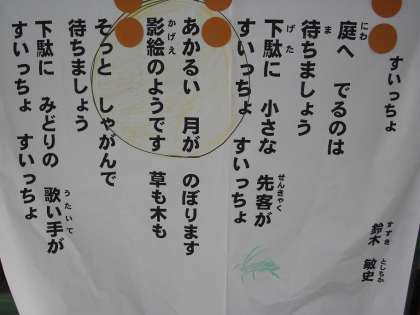 すいっちょ
鈴木 敏史
すずき としちか
庭へ でるのは
にわ
待ちましょう
ま
下駄に 小さな 先客が
げた せんきゃく
すいっちょ すいっちょ
あかるい 月が のぼります
影絵のようです 草も木も
かげえ
そっと しゃがんで
待ちましょう
下駄に みどりの 歌い手が
うたいて
すいっちょ すいっちょ